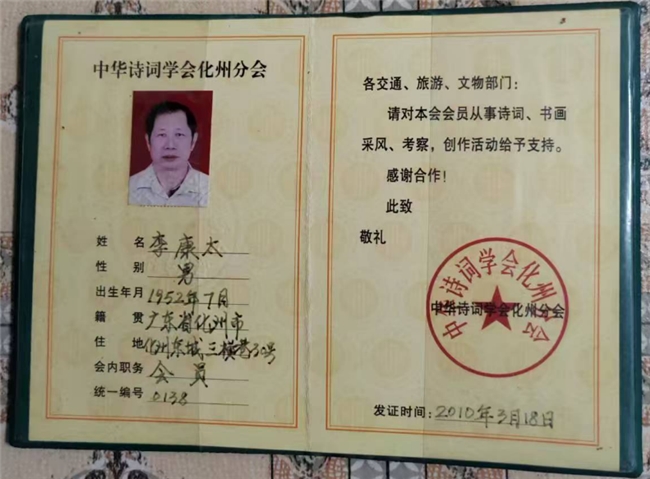 中华诗词学会化州分会
姓名 李康太
性别 男
出生年月 1952年7月
籍贯 广东省化州市
住地 化州东城三横巷30号
会内职务 会员
统一编号 0138
各交通、旅游、文物部门：
请对本会会员从事诗词、书画
采风、考察，创作活动给予支持。
感谢合作！
此致
敬礼
中华诗词学会化州分会
中华诗词学会化州分会
发证时间：2010年3月18日